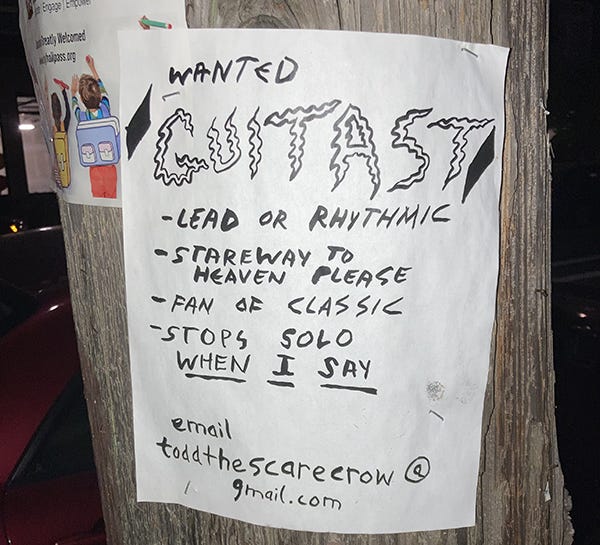 Engage | Empower
Greatly Welcomed
WANTED
GUITAST
-LEAD OR RHYTHMIC
-STAREWAY TO
HEAVEN PLEASE
-FAN OF CLASSIC
-STOPS SOLO
WHEN I SAY
email
toddthescarecrow@
gmail.com